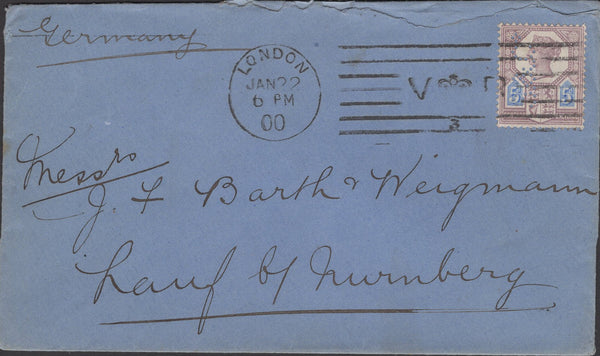 Germany
LONDON
JAN 22
6 PM
00
V R
3
5d 5d
Messrs
J. F. Barth & Weigmann
Lauf b/ Nurnberg